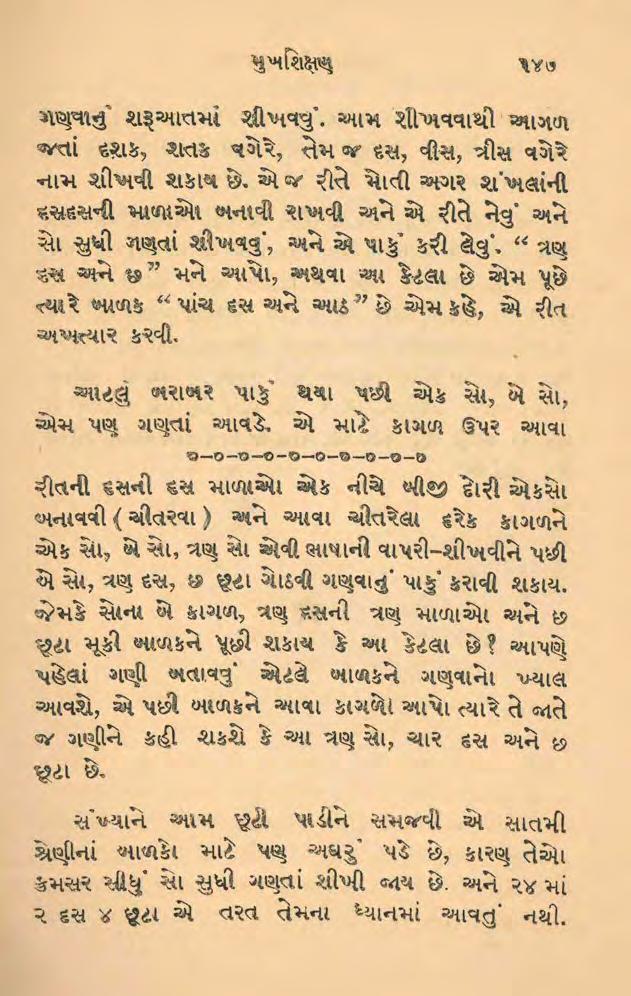 મુખશિક્ષણ ૧૪૭
ગણવાનું શરૂઆતમાં શીખવવું. આમ શીખવવાથી આગળ
જતાં દશક, શતક વગેરે, તેમ જ દસ, વીસ, ત્રીસ વગેરે
નામ શીખવી શકાય છે. એ જ રીતે મોતી અગર શંખલાંની
દસદસની માળાઓ બનાવી રાખવી અને એ રીતે નેવું અને
સો સુધી ગણતાં શીખવવું, અને એ પાકું કરી લેવું. “ ત્રણ
દસ અને છ ” મને આપો, અથવા આ કેટલા છે એમ પૂછે
ત્યારે બાળક “ પાંચ દસ અને આઠ ” છે એમ કહે, એ રીત
અખત્યાર કરવી.
આટલું બરાબર પાકું થયા પછી એક સો, બે સો,
એમ પણ ગણતાં આવડે. એ માટે કાગળ ઉપર આવા
૦-૦-૦-૦-૦-૦-૦-૦-૦-૦
રીતની દસની દસ માળાઓ એક નીચે બીજી દોરી એકસો
બનાવવી ( ચીતરવા ) અને આવા ચીતરેલા દરેક કાગળને
એક સો, બે સો, ત્રણ સો એવી ભાષાની વાપરી-શીખવીને પછી
બે સો, ત્રણ દસ, છ છૂટા ગોઠવી ગણવાનું પાકું કરાવી શકાય.
જેમકે સોના બે કાગળ, ત્રણ દસની ત્રણ માળાઓ અને છ
છૂટા મૂકી બાળકને પૂછી શકાય કે આ કેટલા છે? આપણે
પહેલાં ગણી બતાવવું એટલે બાળકને ગણવાનો ખ્યાલ
આવશે, એ પછી બાળકને આવા કાગળો આપો ત્યારે તે જાતે
જ ગણીને કહી શકશે કે આ ત્રણ સો, ચાર દસ અને છ
છૂટા છે.
સંખ્યાને આમ છૂટી પાડીને સમજવી એ સાતમી
શ્રેણીનાં બાળકો માટે પણ અઘરું પડે છે, કારણ તેઓ
ક્રમસર સીધું સો સુધી ગણતાં શીખી જાય છે. અને ૨૪ માં
૨ દસ ૪ છૂટા એ તરત તેમના ધ્યાનમાં આવતું નથી.